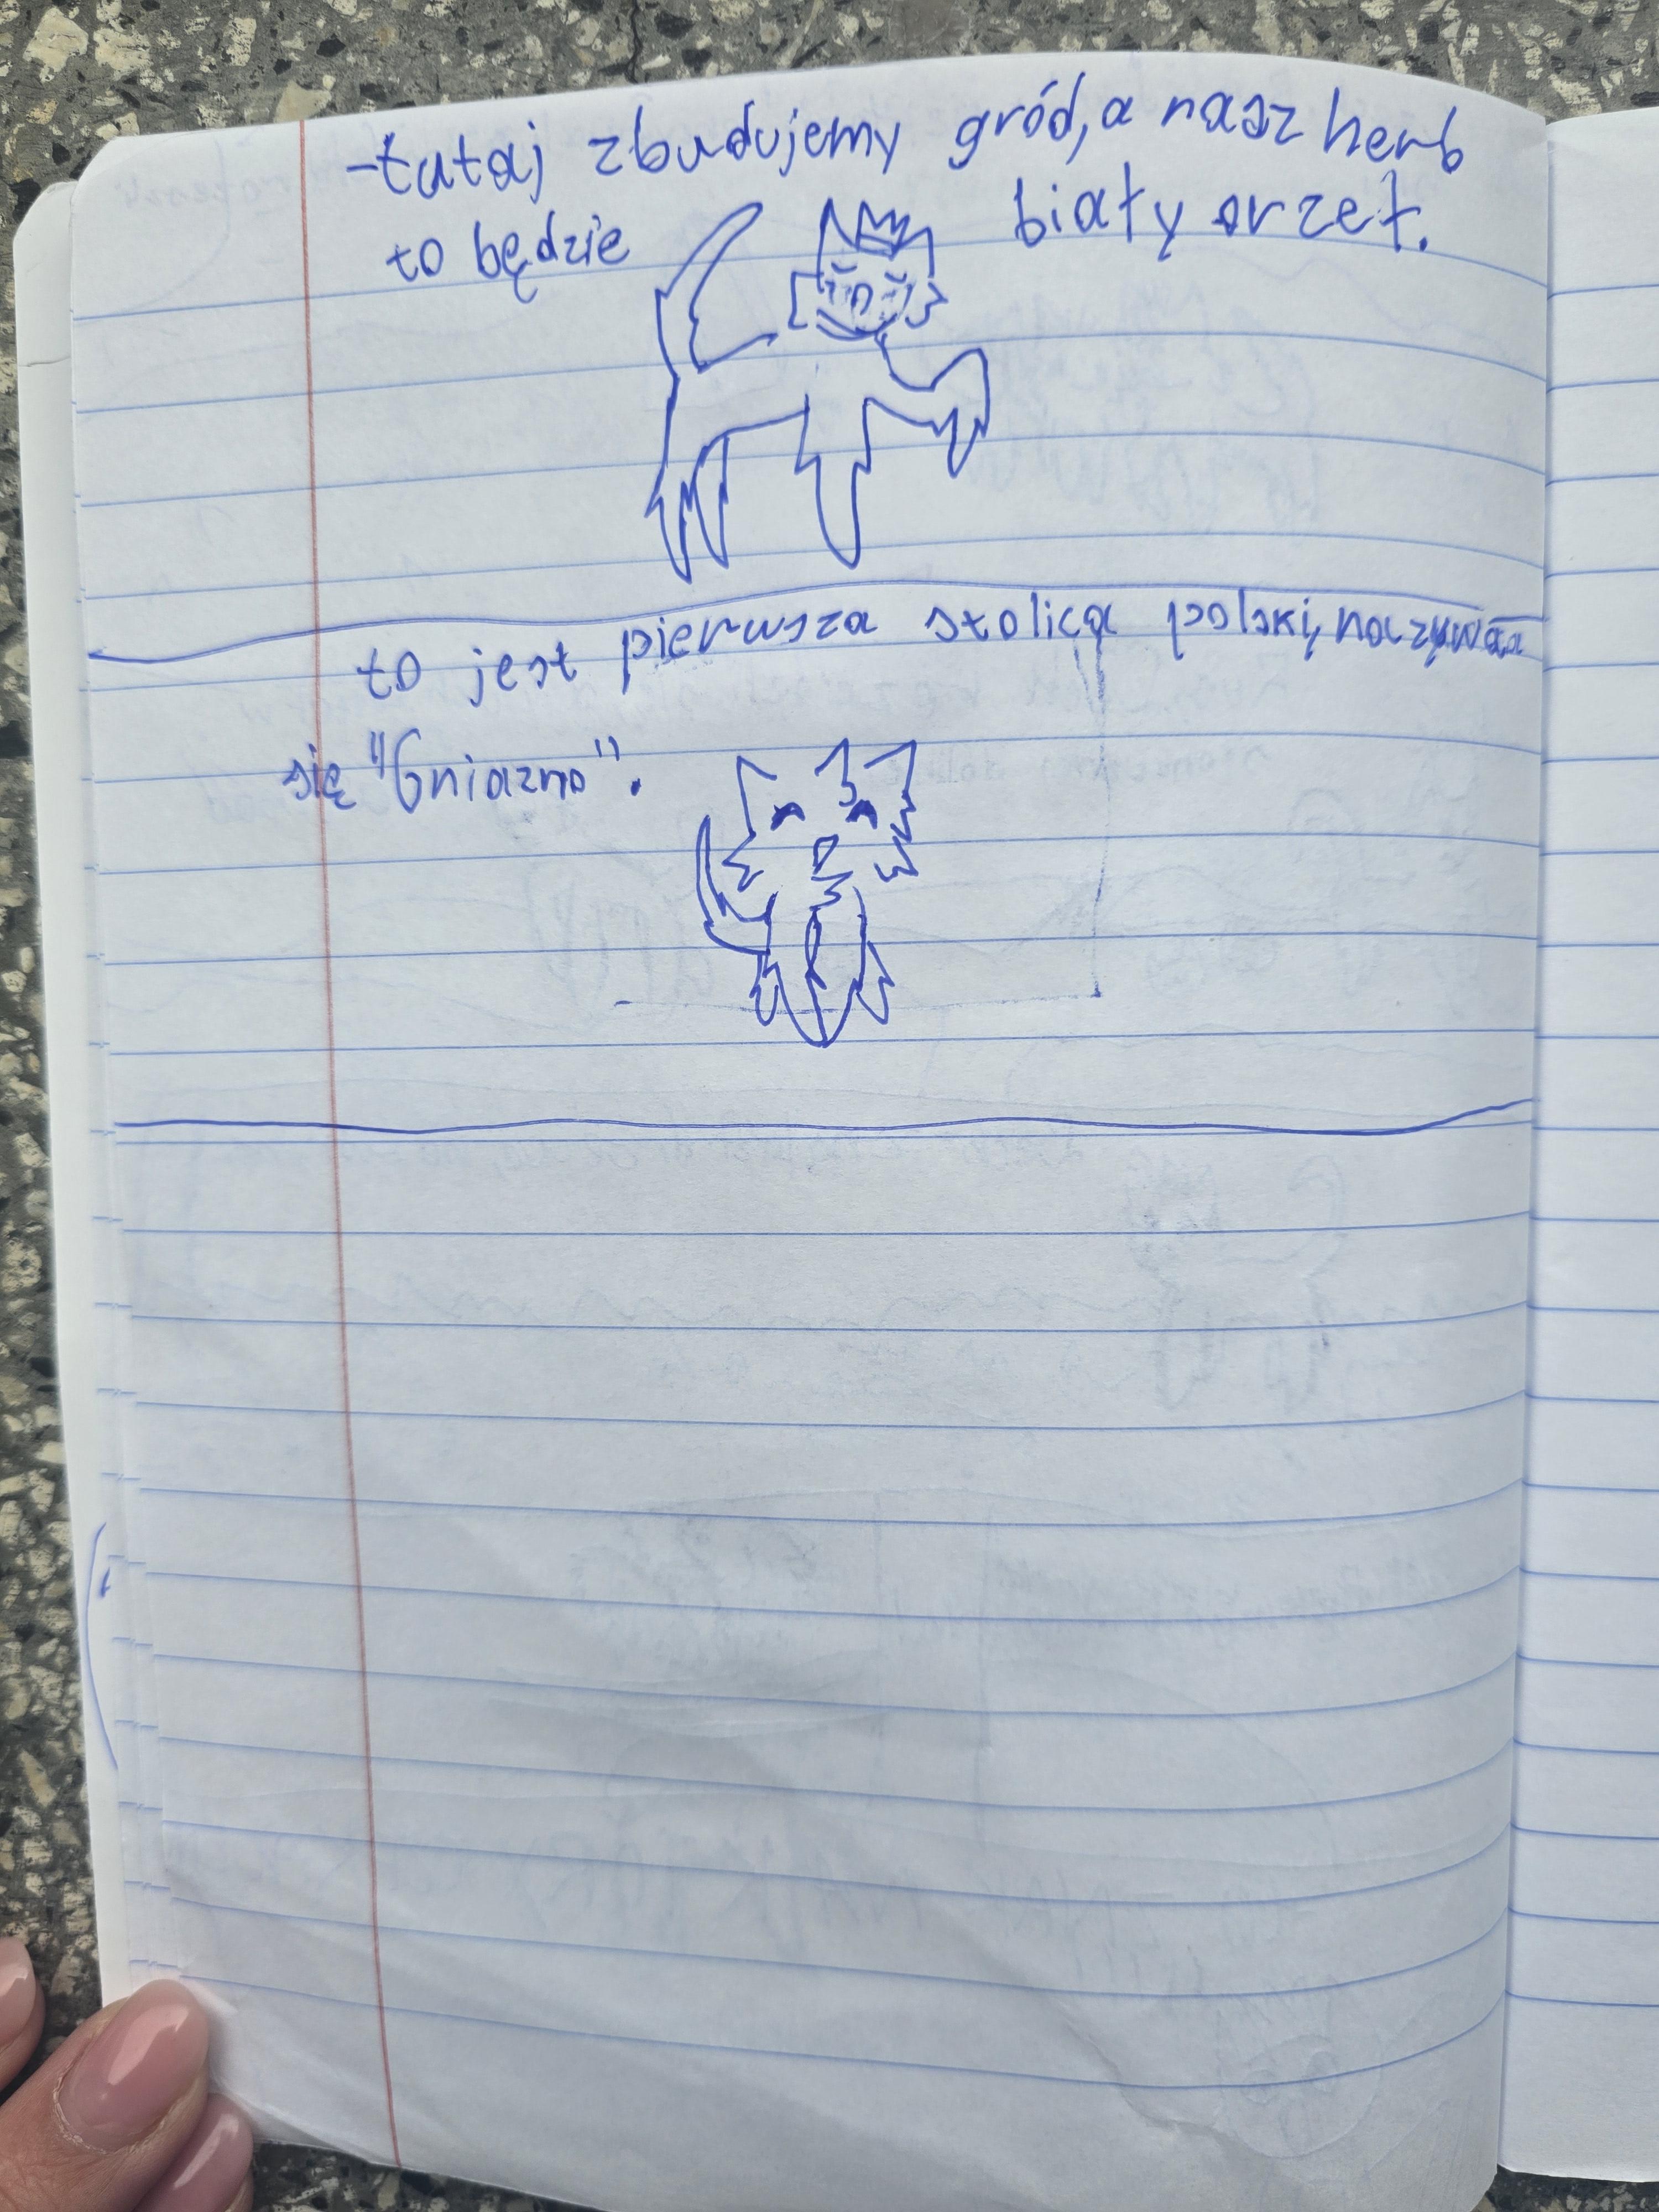 -tutaj zbudujemy gród, a nasz herb
to będzie biały orzeł.
to jest pierwsza stolica polski, naczywa
się "Gniazno".